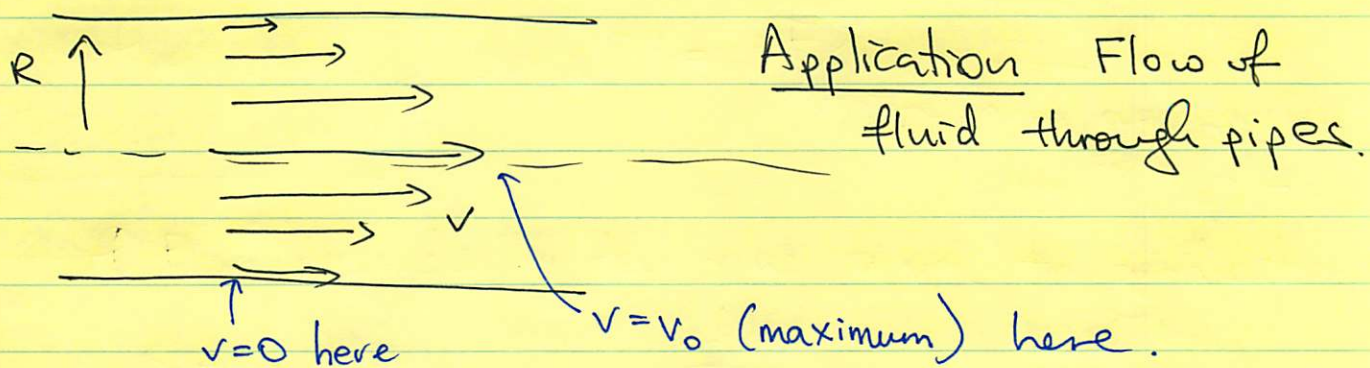 R
Application Flow of
fluid through pipes.
V
v=0 here
v=v₀ (maximum) here.